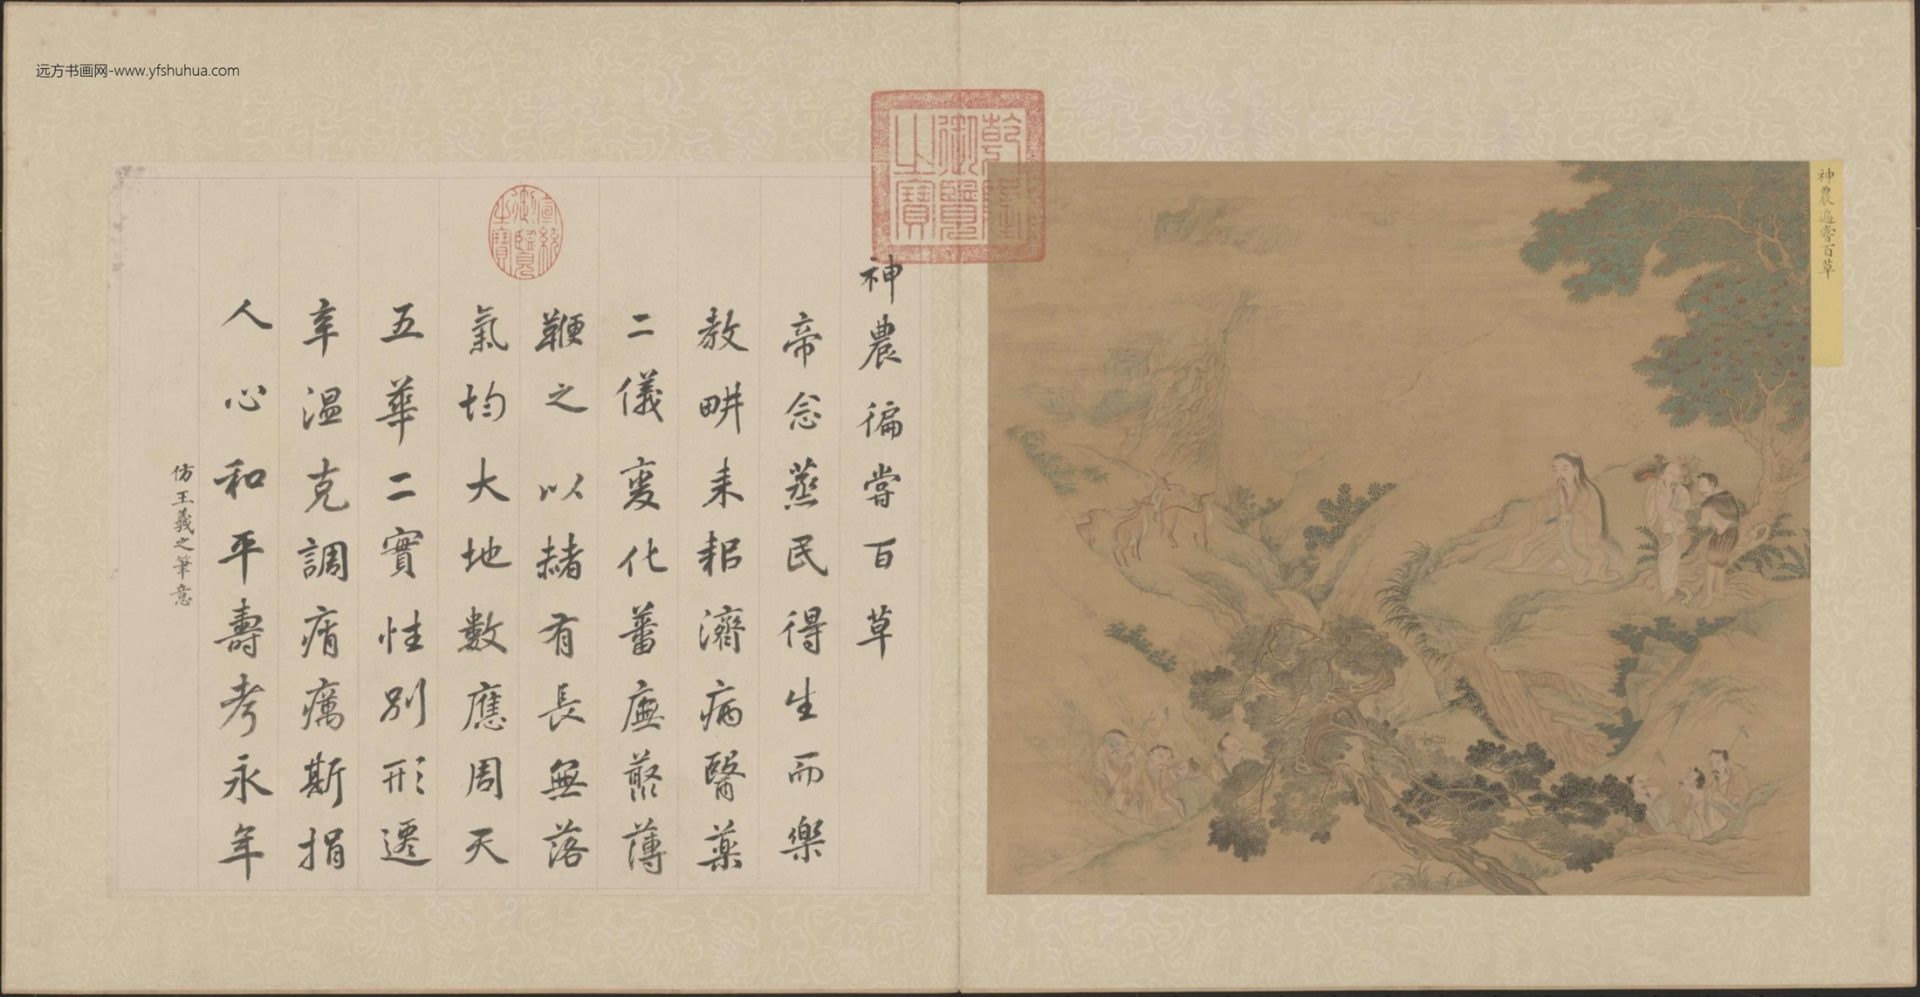 远方书画网-www.yfshuhua.com
神農遍嘗百草
乾隆御覽之寶
神農徧嘗百草
帝念蒸民得生而樂
教畊耒耜濟病醫藥
二儀變化蕃廡藂薄
鞭之以赭有長無落
氣均大地數應周天
五華二實性別形遷
辛溫克調痟癘斯捐
人心和平壽考永年
仿王羲之筆意
宣統御覽之寶